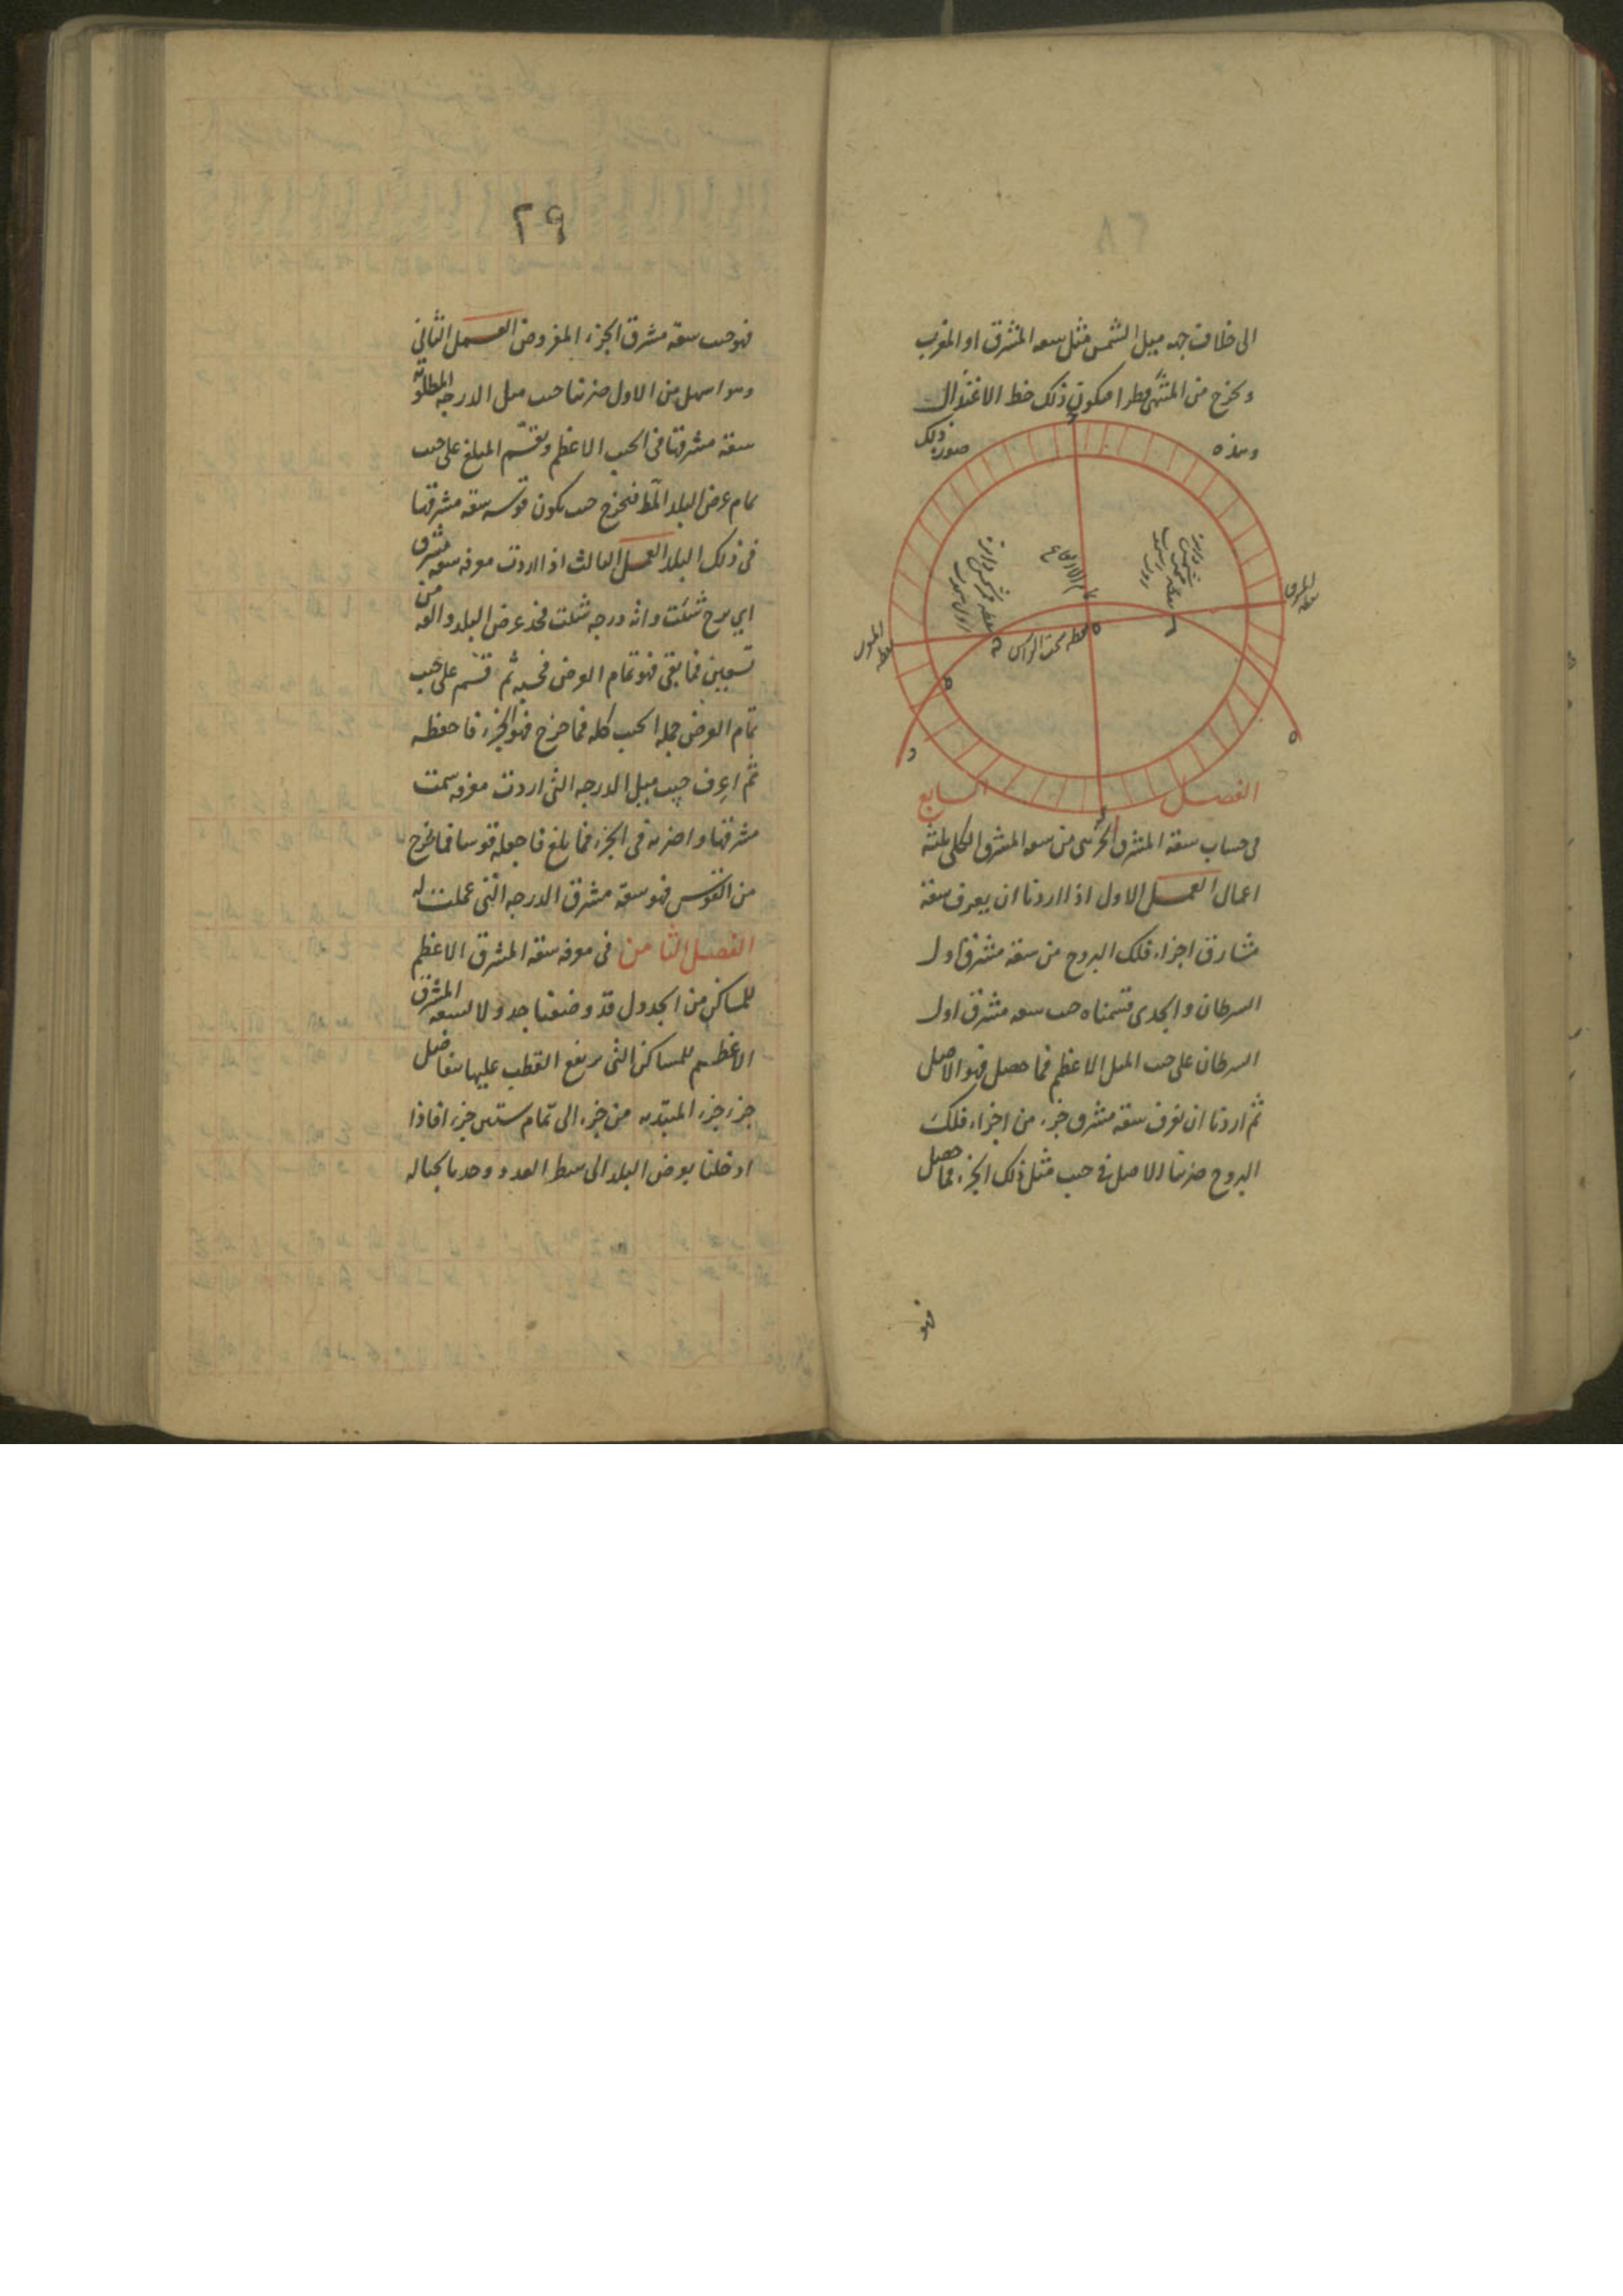 ٢٨
الى خلاف جهه ميل الشمس مثل سعه المشرق او المغرب
و نخرج من المنتهى قطرا فيكون ذلك خط الاعتدال
وهذه صورة ذلك
نقطة المشرق
تمام الارتفاع
نقطه سمت الراس
الفصل السابع
فى حساب سعة المشرق الجزئى من سعه المشرق الكلى بثلثة
اعمال العمل الاول اذا اردنا ان يعرف سعة
مشارق اجزاء فلك البروج من سعة مشرق اول
السرطان و الجدى قسمناه حب سعه مشرق اول
السرطان على حب الميل الاعظم فما حصل فهو الاصل
ثم اردنا ان نعرف سعة مشرق جزء من اجزاء فلك
البروج ضربنا الاصل فى حب ميل ذلك الجزء فما حصل
فهو
٢٩
فهو حب سعة مشرق الجزء المفروض العمل الثانى
وهو اسهل من الاول ضربنا حب ميل الدرجه المطلوبه
سعة مشرقها فى الحب الاعظم و نقسم المبلغ على حب
تمام عرض البلد فيخرج حب يكون قوسه سعة مشرقها
فى ذلك البلد العمل الثالث اذا اردت معرفه سعه مشرق
اى برج شئت وايه درجه شئت فخذ عرض البلد والقه من
تسعين فما بقى فهو تمام العرض فجيبه ثم قسم على حب
تمام العرض جمله الحب كله فما خرج فهو الجزء فاحفظه
ثم اعرف جيب ميل الدرجه التى اردت معرفه سمت
مشرقها واضربه فى الجزء فما بلغ فاجعله قوسا فما خرج
من القوس فهو سعة مشرق الدرجه التى عملت له
الفصل الثامن فى معرفه سعة المشرق الاعظم
للمساكن من الجدول قد وضعنا جدولا لسعه المشرق
الاعظم للمساكن التى يرتفع القطب عليها بتفاضل
جزء جزء المبتديه من جزء الى تمام ستين جزء افاذا
ادخلنا بعرض البلد الى سطر العدد وجدنا بحياله